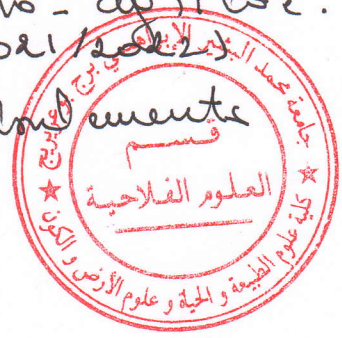 021/2022)
جامعة محمد البشير الإبراهيمي برج بوعريريج
قسم
العلوم الفلاحية
كلية علوم الطبيعة و الحياة و علوم الأرض و الكون